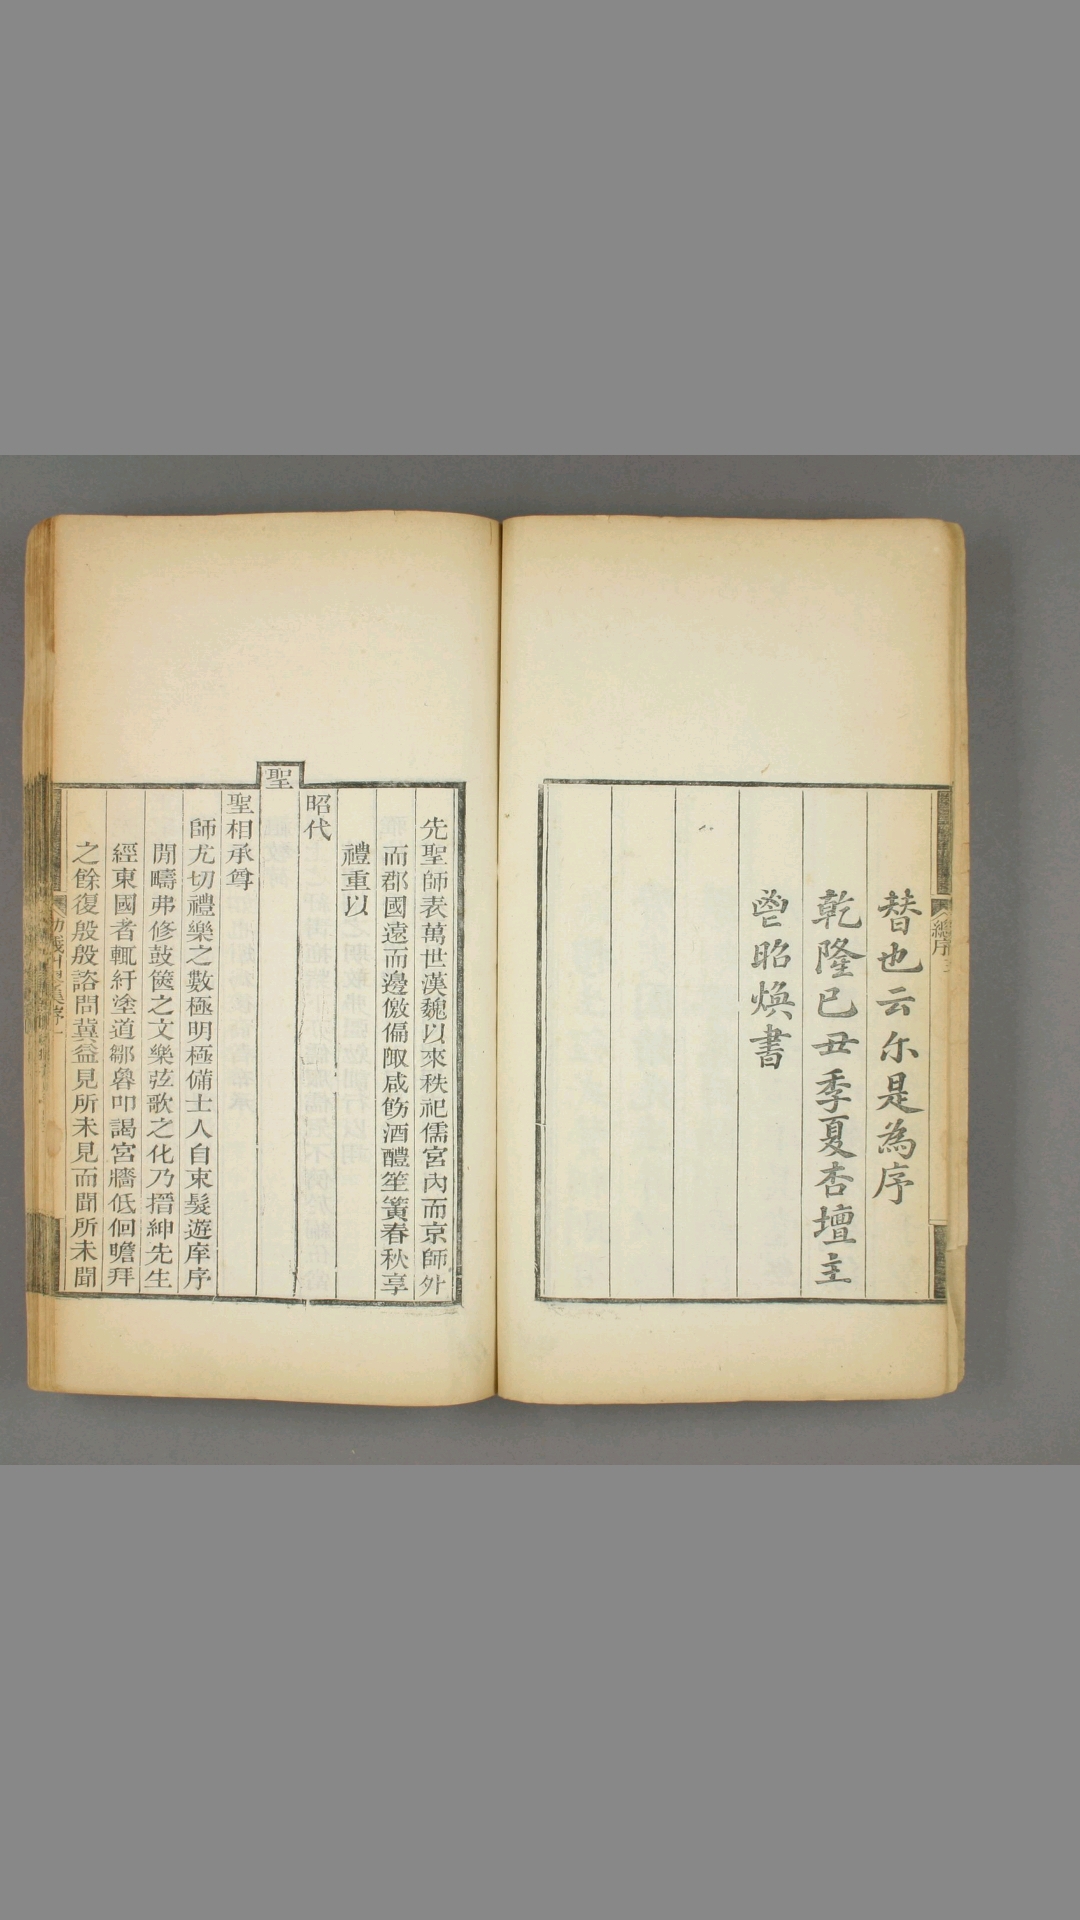 替也云尔是為序
乾隆己丑季夏杏壇主
鬯昭煥書
總序
先聖師表萬世漢魏以來秩祀儒宮內而京師外
而郡國遠而邊儌偏陬咸飭酒醴笙簧春秋享
禮重以
昭代
聖
聖相承尊
師尤切禮樂之數極明極備士人自束髮遊庠序
閒疇弗修鼓篋之文樂弦歌之化乃搢紳先生
經東國者輒紆塗道鄒魯叩謁宮牆低佪瞻拜
之餘復殷殷諮問冀益見所未見而聞所未聞